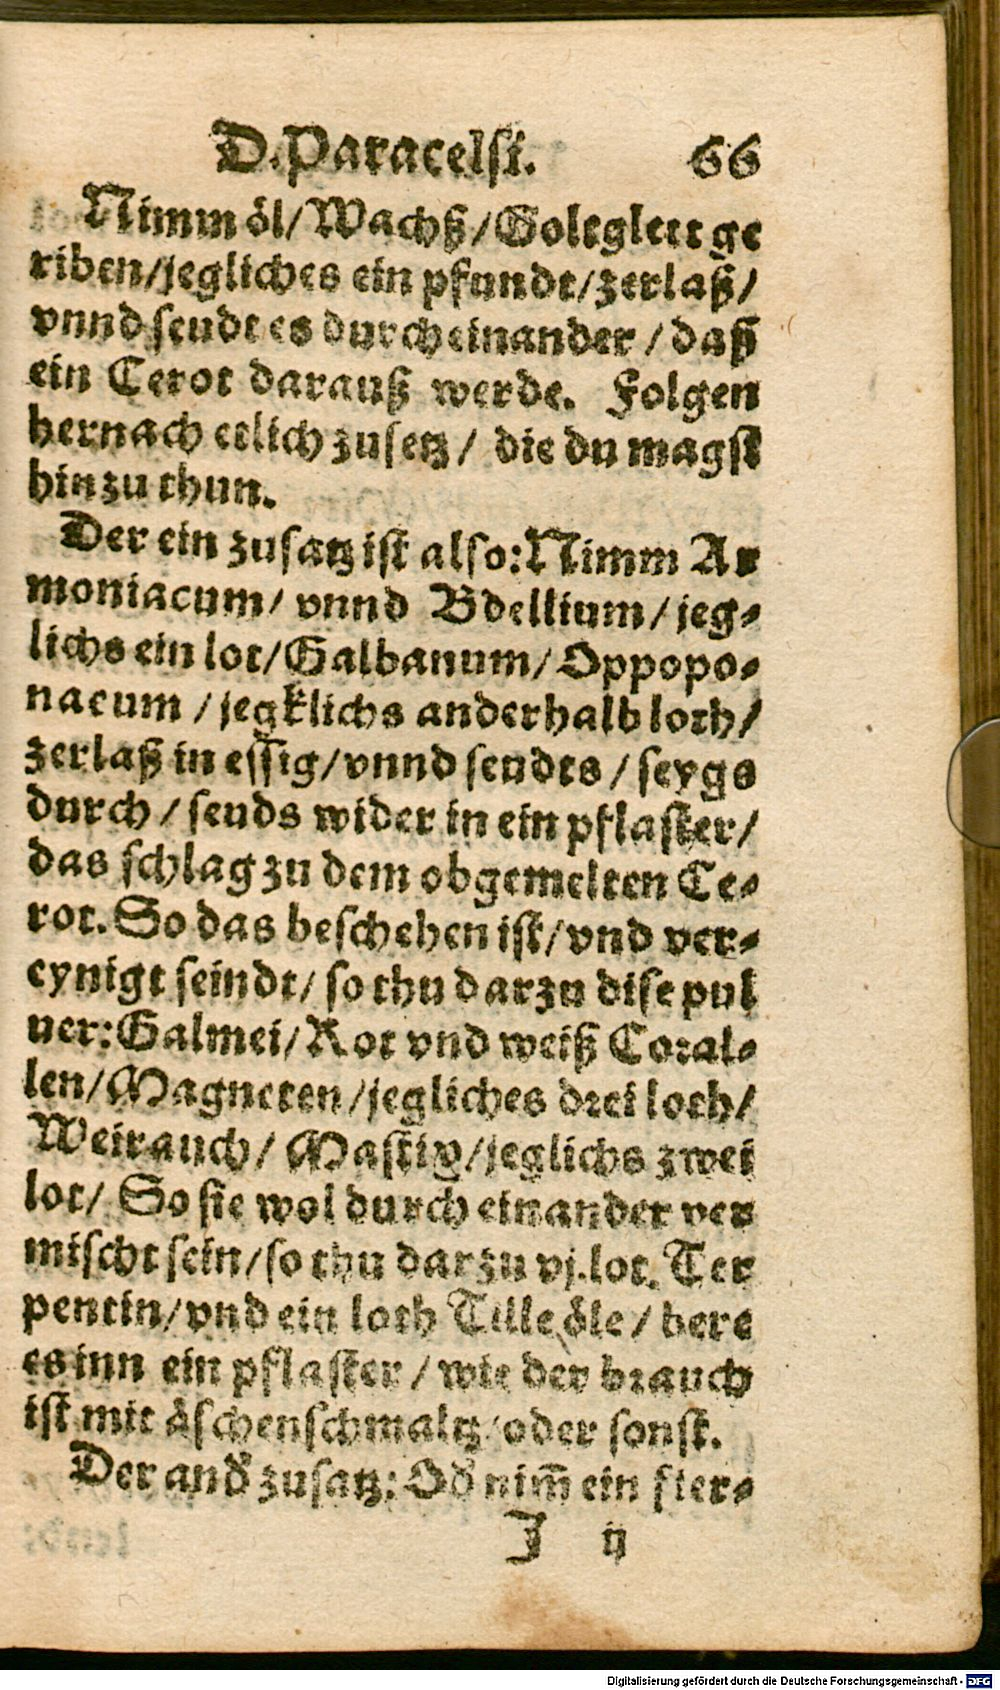 D. Paracelsi. 66
Nimm öl/ Wachß/ Goleglett ge
riben/ jegliches ein pfundt/ zerlaß/
vnnd seudt es durcheinander / daß
ein Cerot darauß werde. Folgen
hernach etlich zusetz / die du magst
hinzu thun.
Der ein zusatz ist also: Nimm Ar
moniacum/ vnnd Bdellium/ jeg-
lichs ein lot/ Galbanum/ Oppopo-
nacum / jegklichs anderhalb loth/
zerlaß in essig/ vnnd seudts / seygs
durch / seuds wider in ein pflaster/
das schlag zu dem obgemelten Ce-
rot. So das beschehen ist/ vnd ver-
eynigt seindt/ so thu darzu dise pul
uer: Galmei/ Rot vnd weiß Coral-
len/ Magneten / jegliches drei loth/
Weirauch/ Mastix/ jeglichs zwei
lot/ So sie wol durch einander ver
mischt sein/ so thu darzu vj. lot. Ter
pentin/ vnd ein loth Tille öle / bere
es inn ein pflaster / wie der brauch
ist mit äschenschmaltz/ oder sonst.
Der and̄ zusatz: Od̄ nim̄ ein fier-
J ij
Digitalisierung gefördert durch die Deutsche Forschungsgemeinschaft - DFG